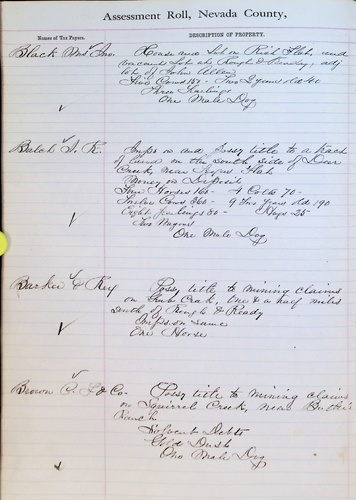 Assessment Roll, Nevada County,
Names of Tax Payers.
DESCRIPTION OF PROPERTY.
Black Mrs Jno. House and Lot on Red Flat, and
vacant Lot at Rough & Ready, adj
lot of John Allen
Two Cows 150 - Two 2 years old 40
Three Yearlings
One Male Dog
Balch J. K. Imps on and Possy title to a tract
of land on the south side of Deer
Creek, near Texas Flat
Money on Deposit
Four Horses 160 - 4 Colts 70 -
Twelve Cows 360 - 9 Two Years old 190
Eight Yearlings 80 - Hogs 25
Two Wagons
One Male Dog
Barker & Key Possy title to mining claims
on Creek, One & a half miles
south of Rough & Ready
Imps. on same
One Horse
Brown C. & Co. Possy title to mining claims
on Squirrel Creek, near
Ranch
Solvent Debts
Gold Dust
One Male Dog